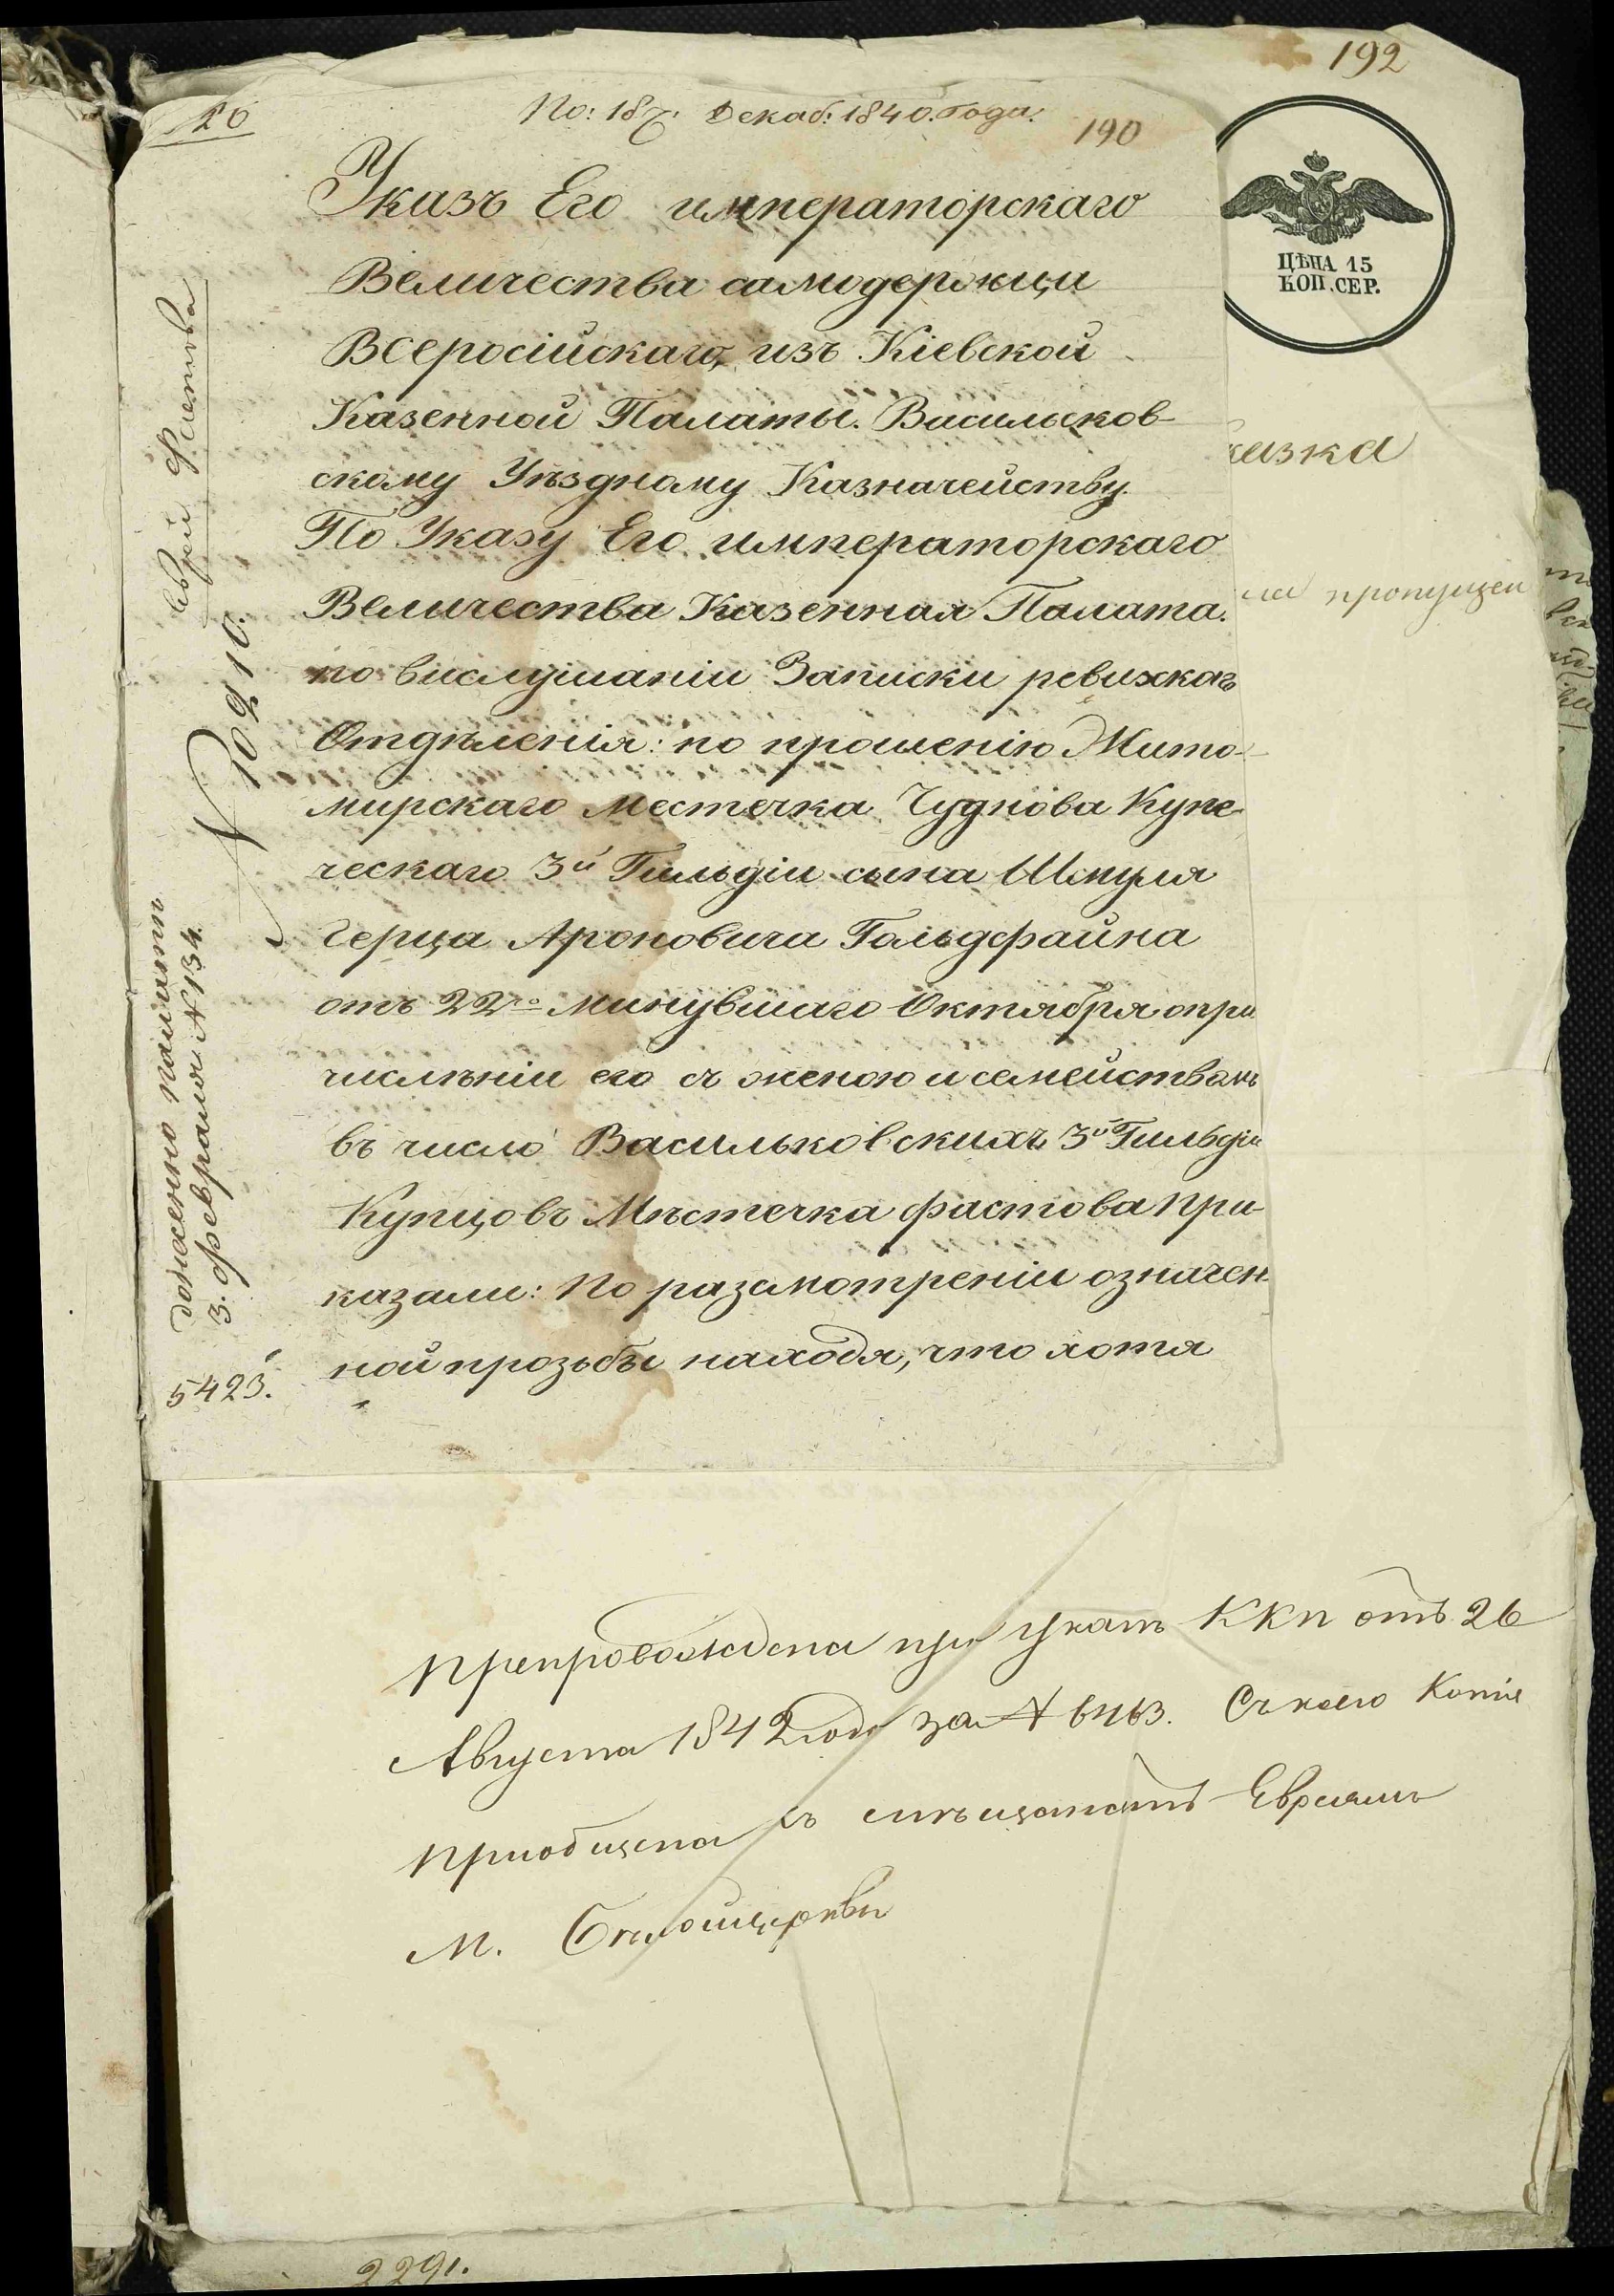 192
20
По: 187. Декаб: 1840. года.
190
Указъ Его императорскаго
Величества самодержци
Всеросійскаго, изъ Кіевской
Казенной Палаты. Васильков-
скому Уѣздному Казначейству.
По Указу Его императорскаго
Величества Казенная Палата.
по вислушаніи Записки ревижскаго
Отдѣленія: по прошенію Жито-
мирскаго местечка Чуднова Купе-
ческаго 3й Гильдіи сына Шмуля
Герца Ароновича Гольдфайна
отъ 22го минувшаго Октября опри
числѣніи его съ женою и семействомъ
въ число Васильковскихъ 3й Гильдіи
Купцовъ Мѣстечка Фастова При-
казали: По разсмотреніи означен-
ной прозьбы находя, что хотя
еврей Фастова
№ 10910.
доложенно
3. Февраля № 134.
5423.
ЦѢНА 15
КОП. СЕР.
казка
пропущен
Препровождена при указѣ ККП отъ 26
Августа 1842 года за № 6463. Съ коего Копія
приобщена къ Евреямъ
М. Бѣлойцеркви
2291.